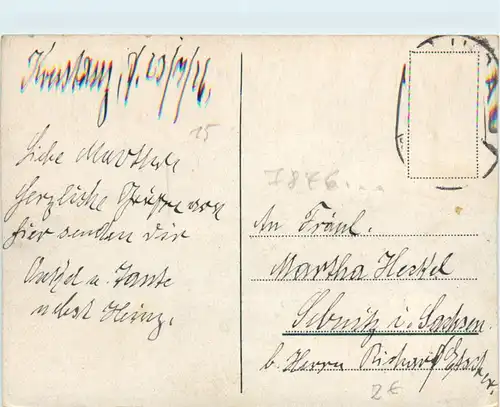 Konstanz, d. 23/7/26.
15
Liebe Marthel
herzliche Grüße von
hier senden dir
Onkel u. Tante
nebst Heinz.
I876...
An Fräul.
Martha Heckel
Sebnitz i. Sachsen.
b. Herrn Richard
2€